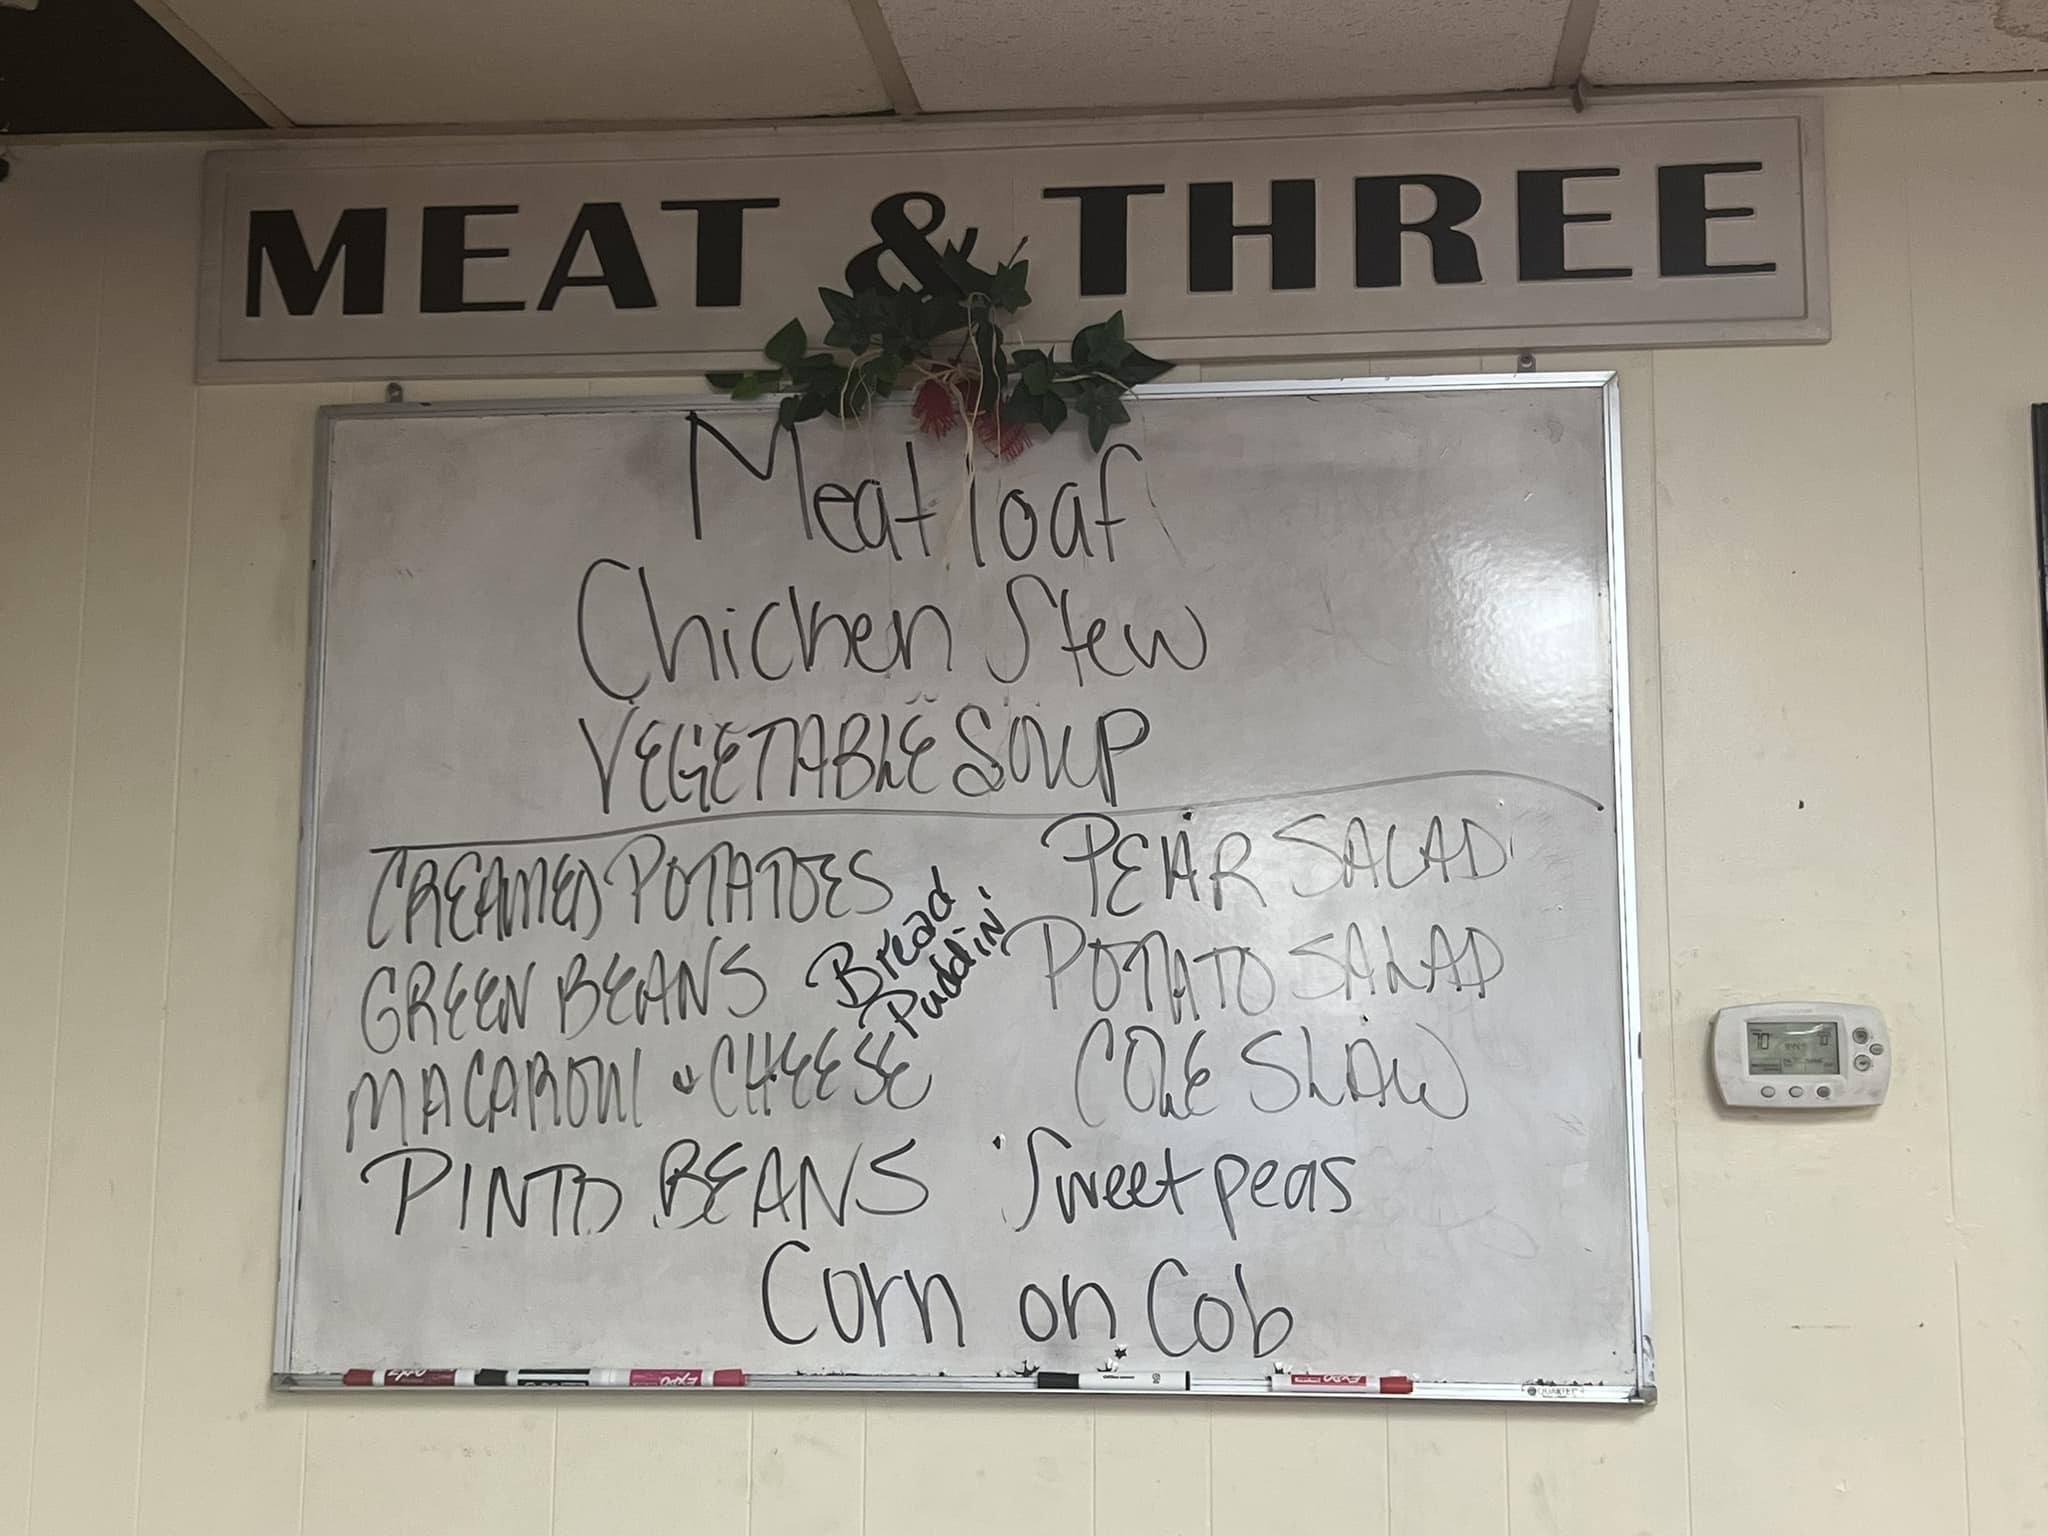 MEAT & THREE
Meatloaf
Chicken Stew
VEGETABLE SOUP
CREAMED POTATOES
GREEN BEANS
MACARONI & CHEESE
PINTO BEANS
Bread
Puddin'
PEAR SALAD
POTATO SALAD
COLE SLAW
Sweet peas
Corn on Cob
EXPO
EXPO
EXPO
QUARTET
70